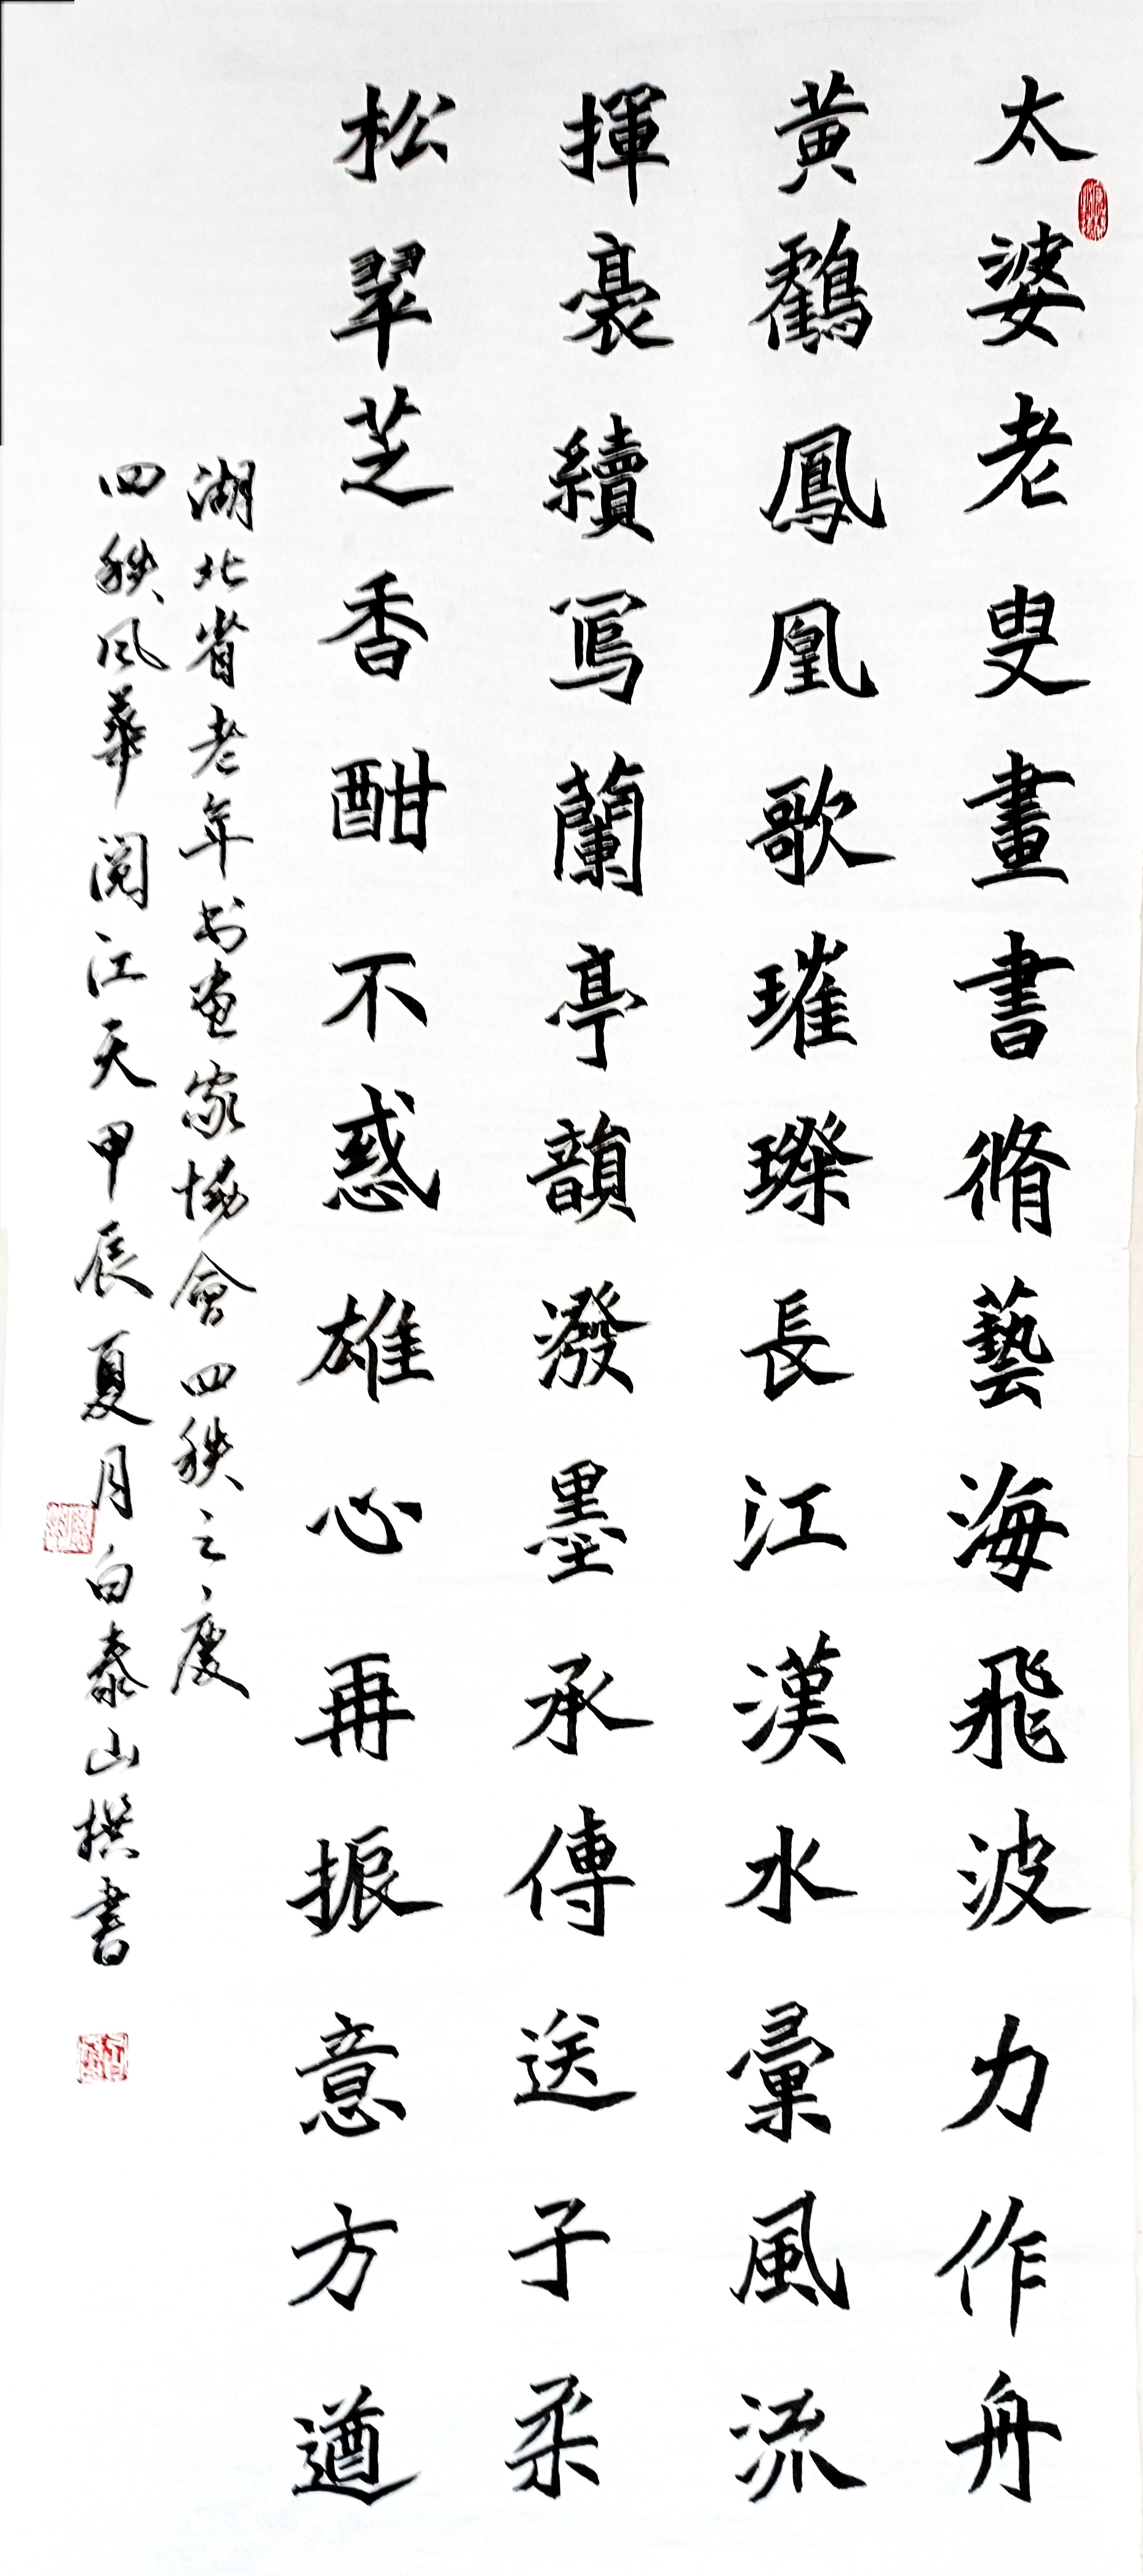 太婆老叟畫書脩藝海飛波力作舟
黃鸖鳳凰歌璀璨長江漢水彙風流
揮豪續寫蘭亭韻潑墨承傳送子柔
松翠芝香酣不惑雄心再振意方遒
湖北省老年书画家協會四秩之慶
四秩风華阅江天甲辰夏月白泰山撰書